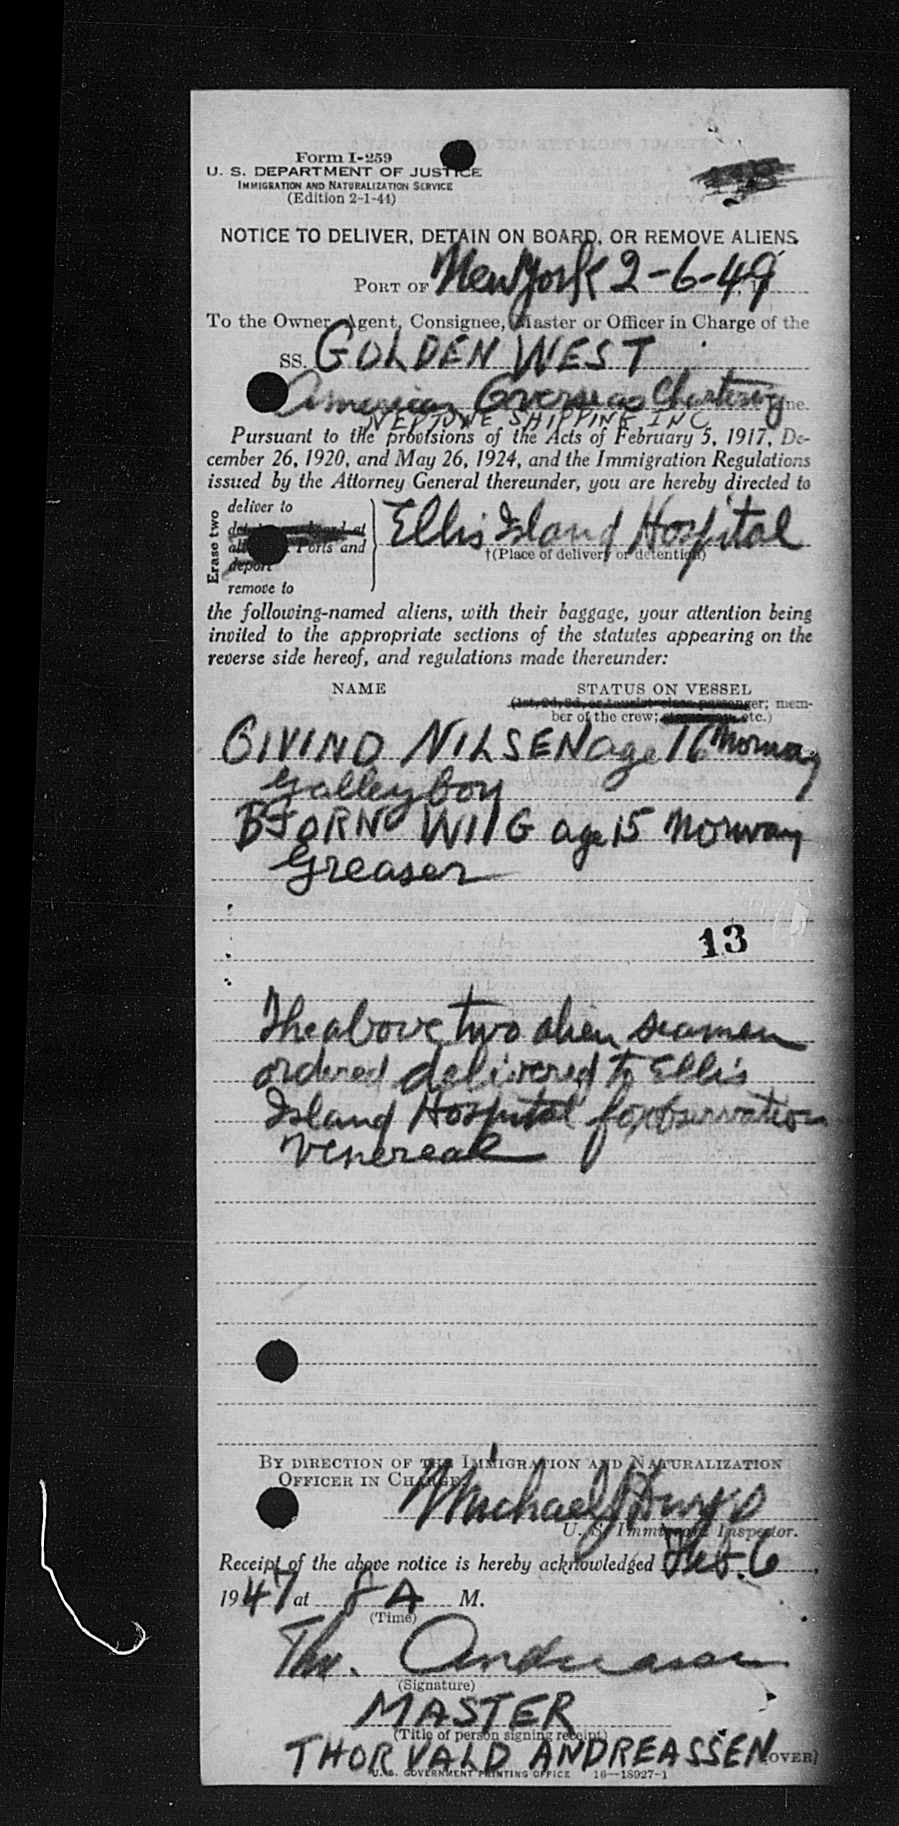 Form I-259
U. S. DEPARTMENT OF JUSTICE
IMMIGRATION AND NATURALIZATION SERVICE
(Edition 2-1-44)
NOTICE TO DELIVER, DETAIN ON BOARD, OR REMOVE ALIENS
PORT OF New York 2-6-49
To the Owner, Agent, Consignee, Master or Officer in Charge of the
SS. GOLDEN WEST
American Overseas Chartering
NEPTUNE SHIPPING INC
Pursuant to the provisions of the Acts of February 5, 1917, De-
cember 26, 1920, and May 26, 1924, and the Immigration Regulations
issued by the Attorney General thereunder, you are hereby directed to
Erase two
deliver to
Ports and
deport
remove to
Ellis Island Hospital
†(Place of delivery or detention)
the following-named aliens, with their baggage, your attention being
invited to the appropriate sections of the statutes appearing on the
reverse side hereof, and regulations made thereunder:
NAME STATUS ON VESSEL
(1st, 2d, 3d, or tourist class passenger; mem-
ber of the crew; etc.)
NILSEN age 16 Norway
Galley boy
BJORN WIIG age 15 Norway
Greaser
13
The above two alien seamen
ordered delivered to Ellis
Island Hospital for observation
venereal
BY DIRECTION OF THE IMMIGRATION AND NATURALIZATION
OFFICER IN CHARGE
Michael J
U. S. Immigrant Inspector.
Receipt of the above notice is hereby acknowledged Feb. 6
1947 at 8 A M.
(Time)
Thv. Andreassen
(Signature)
MASTER
(Title of person signing receipt)
THORVALD ANDREASSEN (OVER)
U. S. GOVERNMENT PRINTING OFFICE 16—18927-1